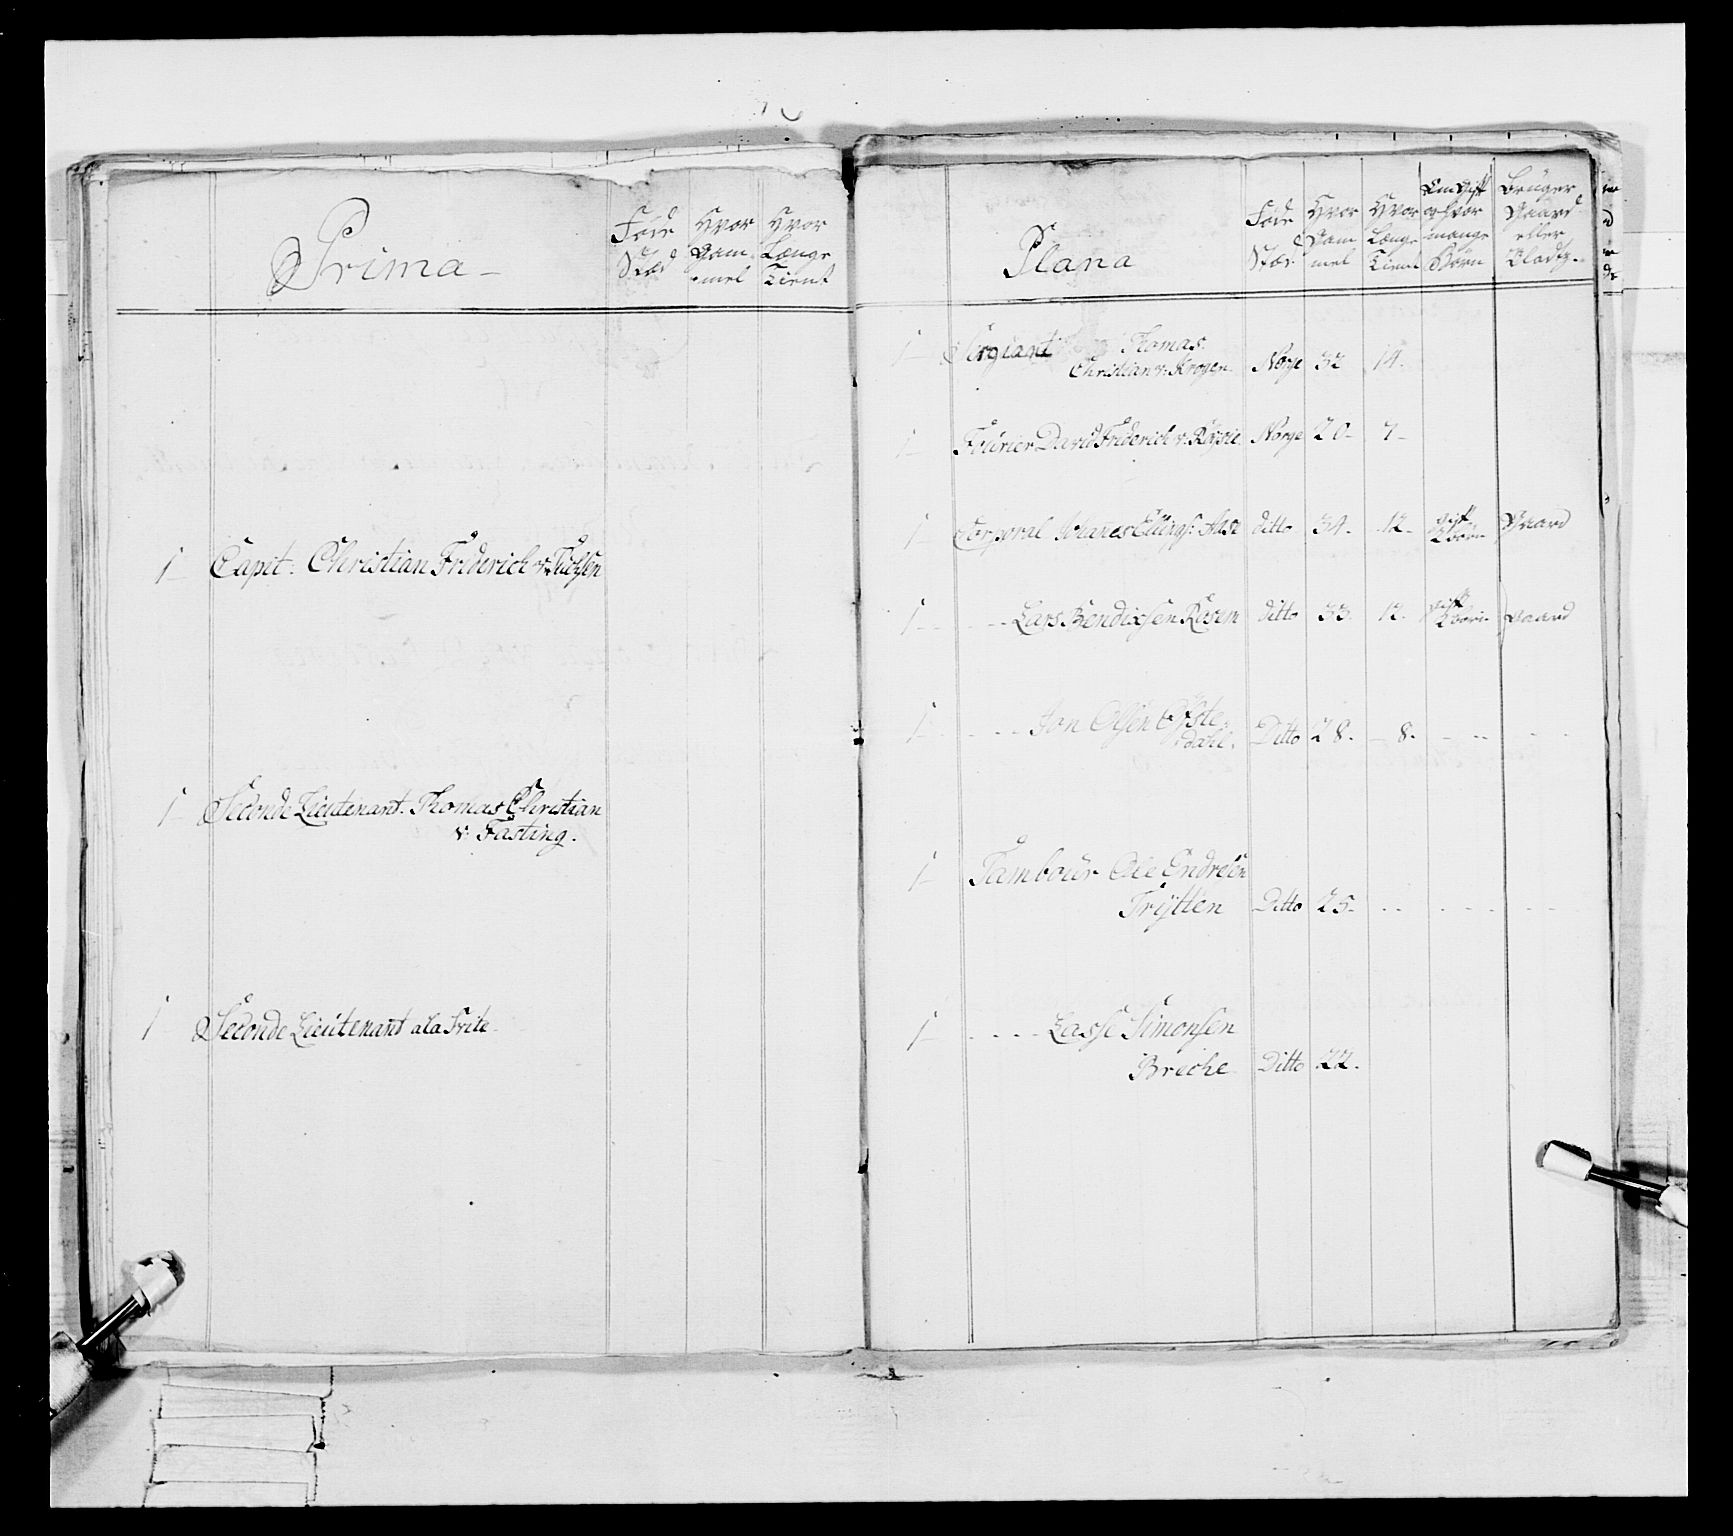 Prima
Føde Stæd
Hvor Gam mel
Hvor Længe Tient
1 Capit. Christian Friderich v: Tuchsen
1 Seconde Lieutenant. Thomas Christian
v: Fasting.
1 Seconde Lieutenant ala Svite
Plana
Føde Stæd
Hvor Gam mel
Hvor Længe Tient
Om Gift og hvor mange Børn
Bruger Gaard eller
1 Sergiant Thomas
Christian v: Krogen Norge 32 14.
1 Fourier David Friderich v: Norge 20 7
1 Corporal Johanes Ellings: Aase ditto 34. 12. gift Gaard
1 Lars Bendixsen Rosem ditto 33. 12. gift Gaard
1 Jon Olsen
dahl. Ditto 28. 8.
1 Tambour Ole Endresen
Trÿtten Ditto 25.
1 Lasse Simonsen
Breche Ditto 22.